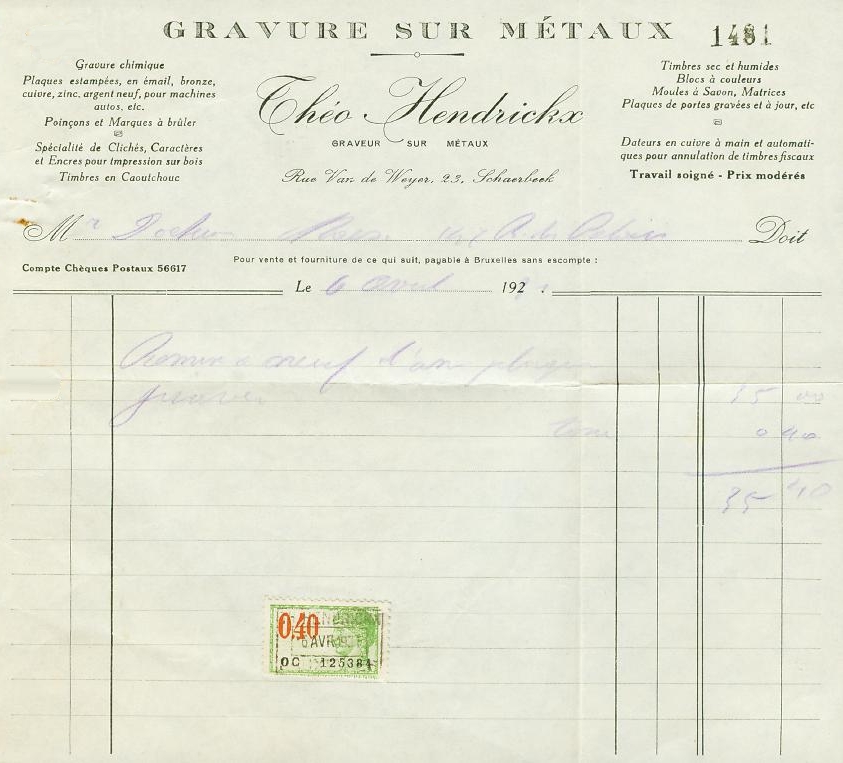 GRAVURE SUR MÉTAUX
1481
Gravure chimique
Plaques estampées, en émail, bronze,
cuivre, zinc, argent neuf, pour machines
autos, etc.
Poinçons et Marques à brûler
Spécialité de Clichés, Caractères
et Encres pour impression sur bois
Timbres en Caoutchouc
Théo Hendrickx
GRAVEUR SUR MÉTAUX
Rue Van de Weyer, 23, Schaerbeek
Timbres sec et humides
Blocs à couleurs
Moules à Savon, Matrices
Plaques de portes gravées et à jour, etc
Dateurs en cuivre à main et automati-
ques pour annulation de timbres fiscaux
Travail soigné - Prix modérés
Mr Docteur Doit
Compte Chèques Postaux 56617
Pour vente et fourniture de ce qui suit, payable à Bruxelles sans escompte :
Le 6 avril 192
Remise à neuf d'une plaque
gravée 35
taxe 0 40
35 40
0,40
6 AVR
OC 125384